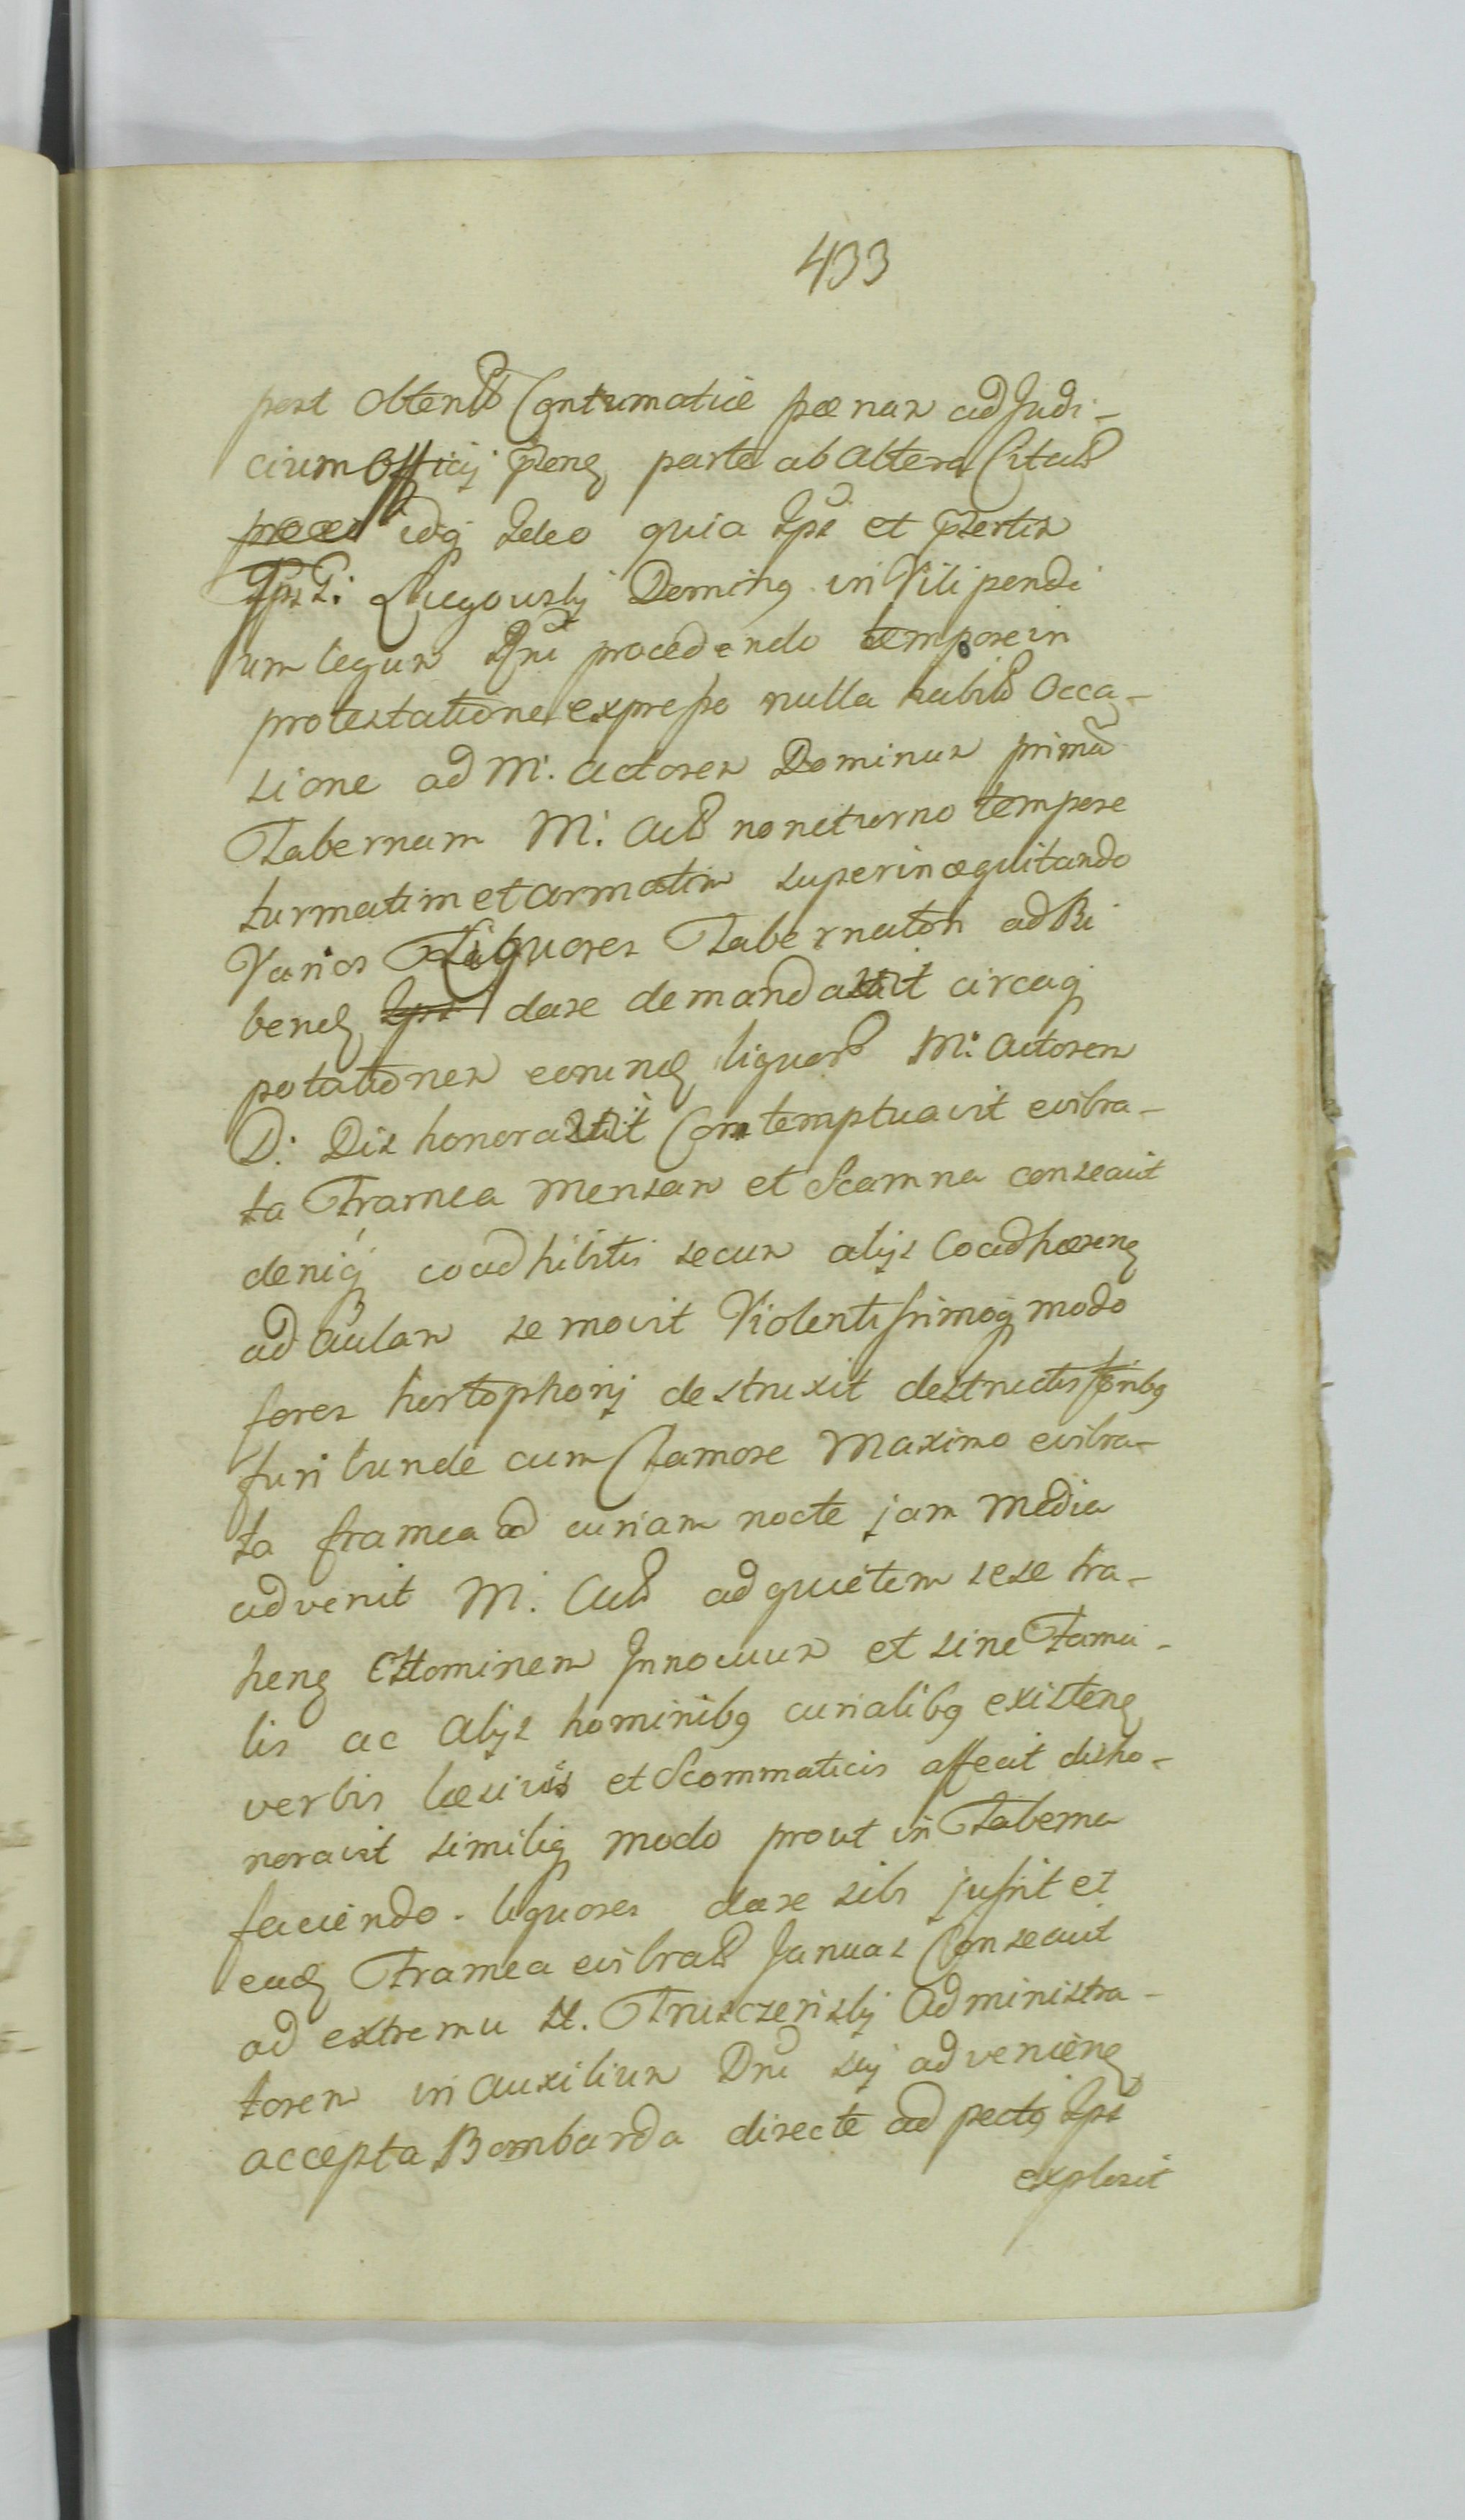 433
post obtent Contumatiæ pænam ad Judi-
cium Officij pñeng parte ab altera Citat
idq Ideo quia Ipsi et pñertim
Ługowsky Doming in Vilipendi
um legum Dni procedendo tempore in
protestatione expresso nulla habit Occa-
sione ad M: Actorem Dominum prima
Tabernam M: Act nocturno tempore
turmatim et armatim superinæquitando
Varios Liquores Tabernatori ad Bi
bend dare demandavit circaq
potationem eorund liquor M: Actorem
D: Dishonoravit Contemptuavit evibra-
ta Framea Mensam et Scamna consecuit
deniq coadhibitis secum alijs Coadhæreng
ad Aulam se movit Violentissimoq modo
fores hortophorij destruxit destructis foribq
furibunde cum Clamore Maximo evibra-
ta framea ad curiam nocte jam Media
advenit M: Act ad quietem sese tra-
heng Hominem Innocuum et sine Famu-
lis ac Alijs hominibq curialibq existeng
verbis læsivis et Scommaticis affecit disho-
noravit similiq modo prout in Taberna
faciendo liquores dare sibi jussit et
ead Framea evibrat Januas Consecuit
ad extremu Truszczensky Administra-
torem in Auxilium Dni sui advenieng
accepta Bombarda directe ad pectq Ipsi
explosit